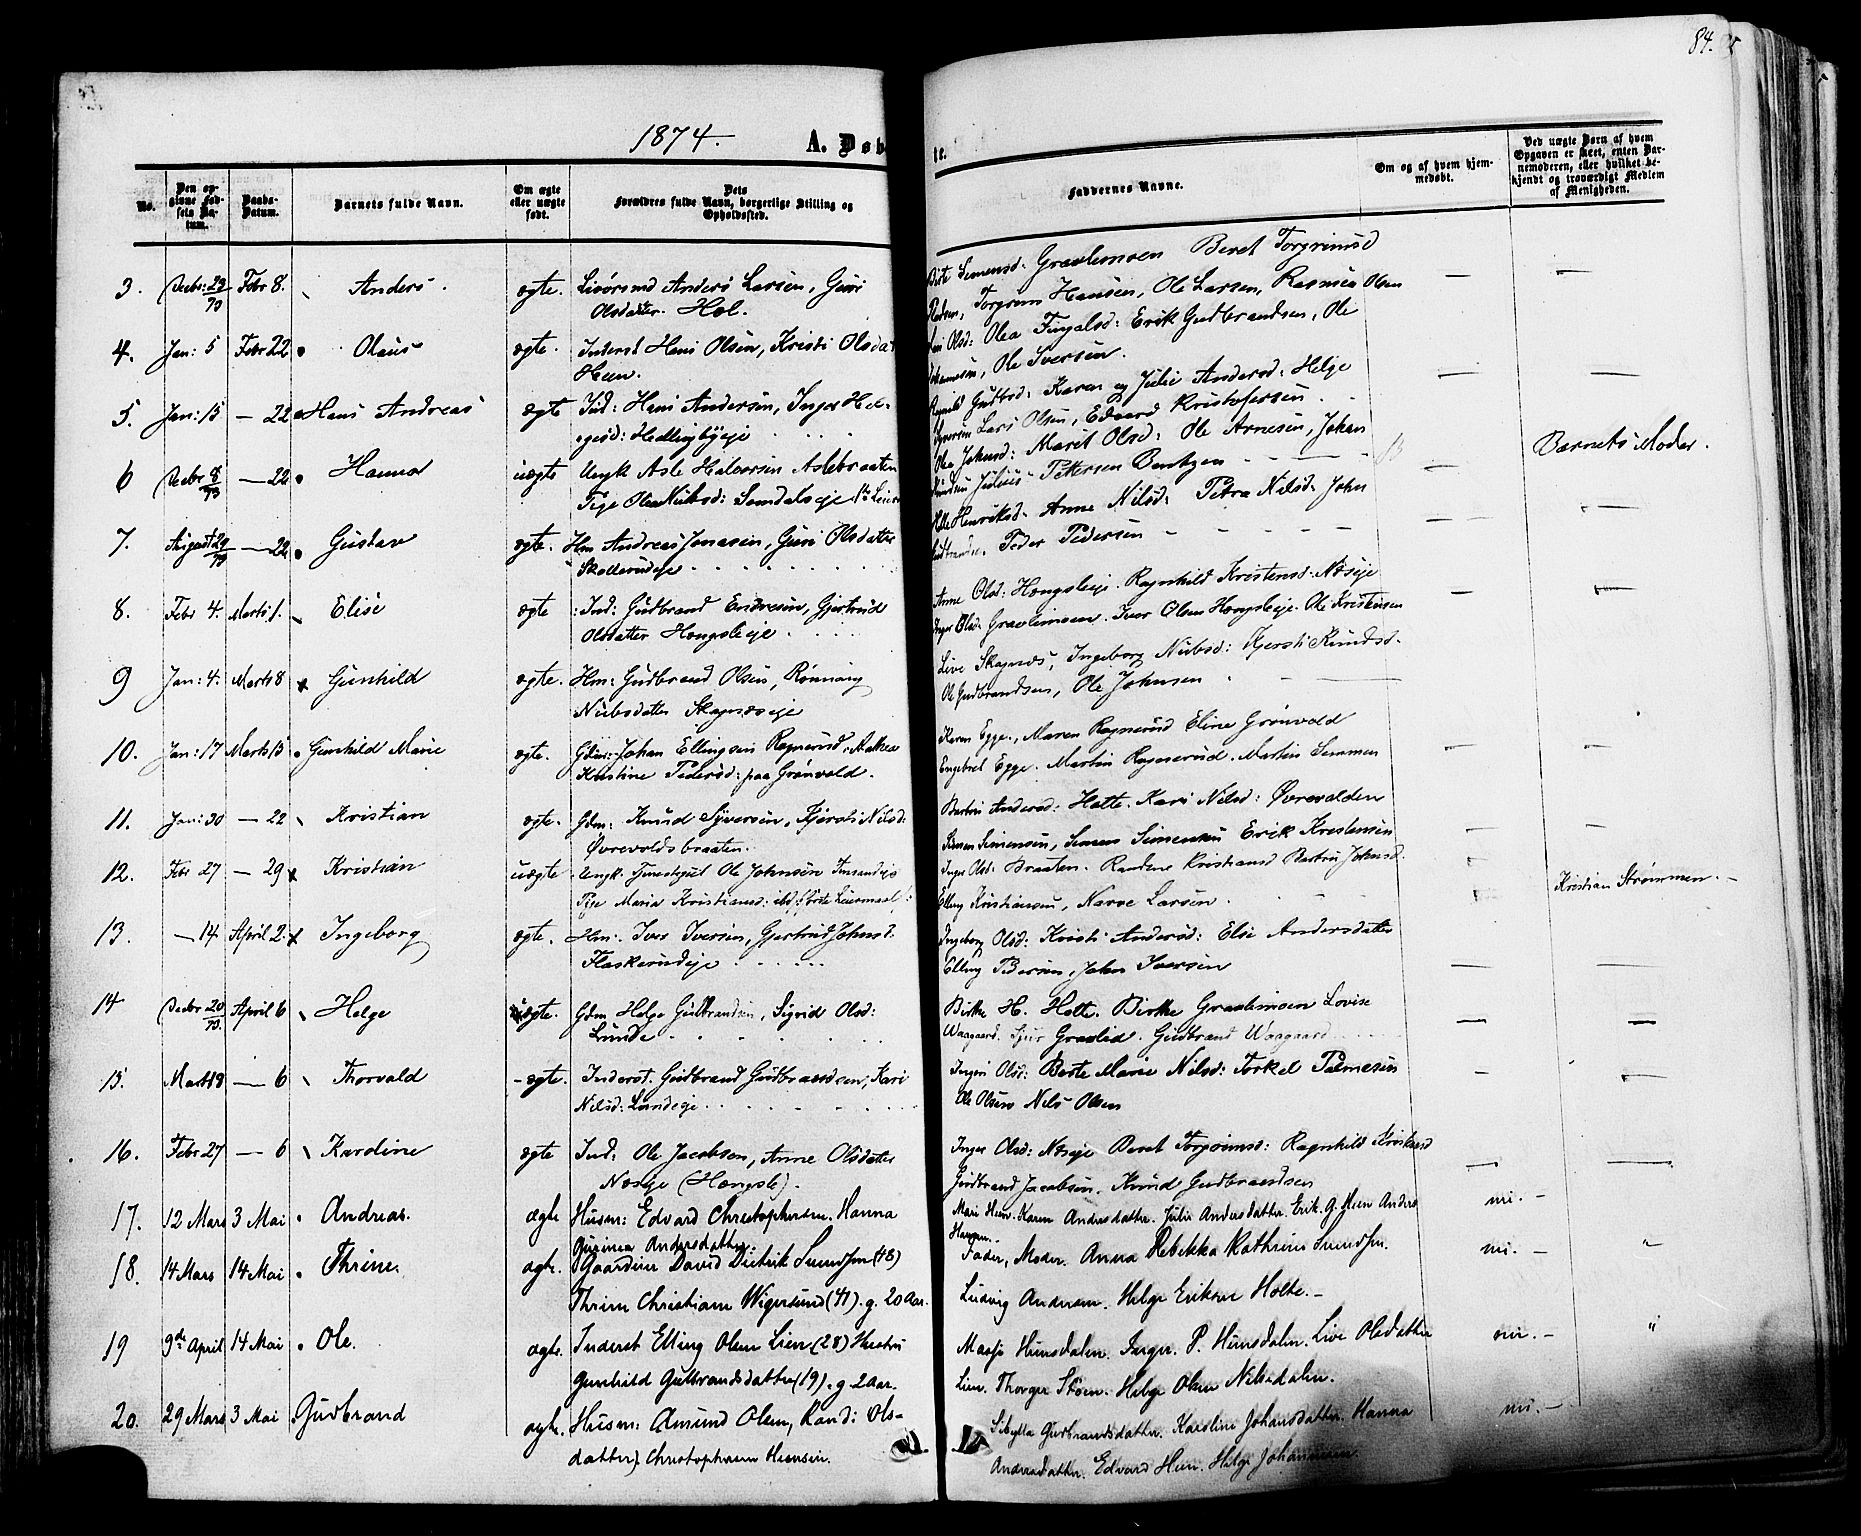 84.
1874.
A. Døb
te.
No.
Den opgivne Fødsels Datum.
Daabs-Datum.
Barnets fulde Navn.
Om ægte eller uægte født.
Dets Forældres fulde Navn, borgerlige Stilling og Opholdssted.
Faddernes Navne.
Om og af hvem hjemmedøbt.
Ved uægte Børn af hvem Opgaven er skeet, enten Barnemoderen, eller hvilket bekjendt og troværdigt Medlem af Menigheden.
3. Decbr: 29/73 Febr 8. Anders. ægte. Anders Larsen, Guri
Olsdatter. Hol.
Simensd. Gravlimoen Beret Torgrimsd
Torgrim Hansen, Ole Larsen, Rasmus Olsen
4. Jan: 5 Febr 22 Olaus ægte. Inderst Hans Olsen, Kristi Olsdat
Heen.
Olsd: Olea Fingalsd: Erik Gudbrandsen, Ole
Johannesen, Ole Iversen.
5. Jan: 15 — 22 Hans Andreas ægte Ind: Hans Andersen, Inger Hel-
gesd: Hellingbyeje
Gudbrd: Karen og Julie Andersd: Helge
Syversen Lars Olsen, Edvard Kristofersen
6 Decbr 8/73 — 22 Hanna uægte Ungk Asle Halvorsen Aslebraaten
Pige Olea Nubsd: Semdalseje
Olea Johnsd: Marit Olsd: Ole Arnesen, Johan
Julius Pettersen Berntzen
Barnets Moder.
7. August 29/73 — 22 Gustav ægte. Hm Andreas Jonasen, Guri Olsdatter
Skollerudeje
Helle Henriksd. Anne Nilsd: Petra Nilsd. John
Gudbrandsen. Peder Pedersen
8. Febr 4. Marts 1. Elise ægte Ind: Gudbrand Endresen, Gjertrud
Olsdatter Hongsleeje
Anne Olsd: Hongsleeje. Ragnhild Kristensd. Næseje
Inger Olsd: Gravlimoen. Iver Olsen Hongsleeje. Ole Kristensen
9 Jan: 4. Marts 8 Gunhild ægte. Hm: Gudbrand Olsen, Rønnaug
Nubsdatter Skagnæseje
Live Skagnæs, Ingeborg Nubsd: Kjersti Knudsd.
Ole Gudbrandsen, Ole Johnsen
10. Jan: 17 Marts 15 Gunhild Marie ægte. Gdm: Johan Ellingsen Ragnerud, Mathea
Kristine Pedersd: paa Grønvold.
Karen Egge., Maren Ragnerud Eline Grønvold
Engebret Egge. Martin Ragnerud. Martin Semmen
11. Jan: 30 — 22 Kristian ægte. Gdm: Knud Syversen, Kjersti Nilsd:
Øvrevoldsbraaten.
Bertru Andersd: Holte. Kari Nilsd: Øvrevolden
Simen Simensen, Simen Simensen Erik Kristensen
12. Febr 27 — 29 Kristian uægte. Ungk. Tjenestegut Ole Johnsen
Pige Maria Kristiansd: ibd: (første Leiermaal)
Inger Olsd: Braaten. Randine Kristiansd Bertru Johnsd.
Elling Kristiansen, Narve Larsen
Kristian Strømmen.
13. — 14 April 2. Ingeborg ægte. Hm: Iver Iversen, Gjertrud Johnsd:
Flaskerudeje
Ingeborg Olsd: Kristi Andersd: Else Andersdatter
Elling Pedersen, John Iversen
14 Decbr 20/73. April 6 Helge ægte. Gdm Helge Gulbrandsen, Sigrid Olsd:
Lunde
Birthe H. Holte. Birthe Gravlimoen Lovise
Waagaard. Sjur Gravlid. Gudbrand Waagaard
15. Marts 18 — 6 Thorvald ægte. Inderst. Gudbrand Gudbrandsen, Kari
Nilsd: Lundeeje
Ingeri Olsd: Berte Marie Nilsd: Torkel Palmesen
Ole Olsen Nils Olsen
16. Febr 27 — 6 Karoline ægte Ind: Ole Jacobsen, Anne Olsdatter
Næseje (Hongsle).
Inger Olsd: Næseje Beret Torgrimsd: Ragnhild Kristensd
Gudbrand Jacobsen. Knud Gudbrandsen
17. 12 Mars 3 Mai Andreas. ægte Husm: Edvard Christophersen. Hanna
Gurinea Andersdatter.
Mari Heen. Karen Andersdatter. Julie Andersdatter. Erik G. Heen Anders
Hansen.
ni.
18. 14 Mars 14 Mai Thrine. ægte. Gaardeier David Didrik Svendsen (48)
Thrine Christiane Wigersund (41). g. 20 Aar.
Fader, Moder. Anna Rebekka Kathrine Svendsen.
Ludvig Andersen. Helge Eriksen Holte.
ni. "
19 9de April 14 Mai Ole. ægte. Inderst Elling Olsen Lien (28) Hustru
Gunhild Gulbrandsdatter (19). g 2 Aar.
Masje Hunsdalen. Inger P. Hunsdalen. Live Olsdatter
Lien. Thorger Støen. Helge Olsen Nilsdalen.
ni. "
20. 29 Mars 3 Mai Gudbrand ægte. Husm: Amund Olsen, Randi Ols-
datter) Christophersen Heensein.
Sibylla Gudbrandsdatter. Karoline Johansdatter. Hanna
Andersdatter. Edvard Heen. Helge Johannesen
ni.